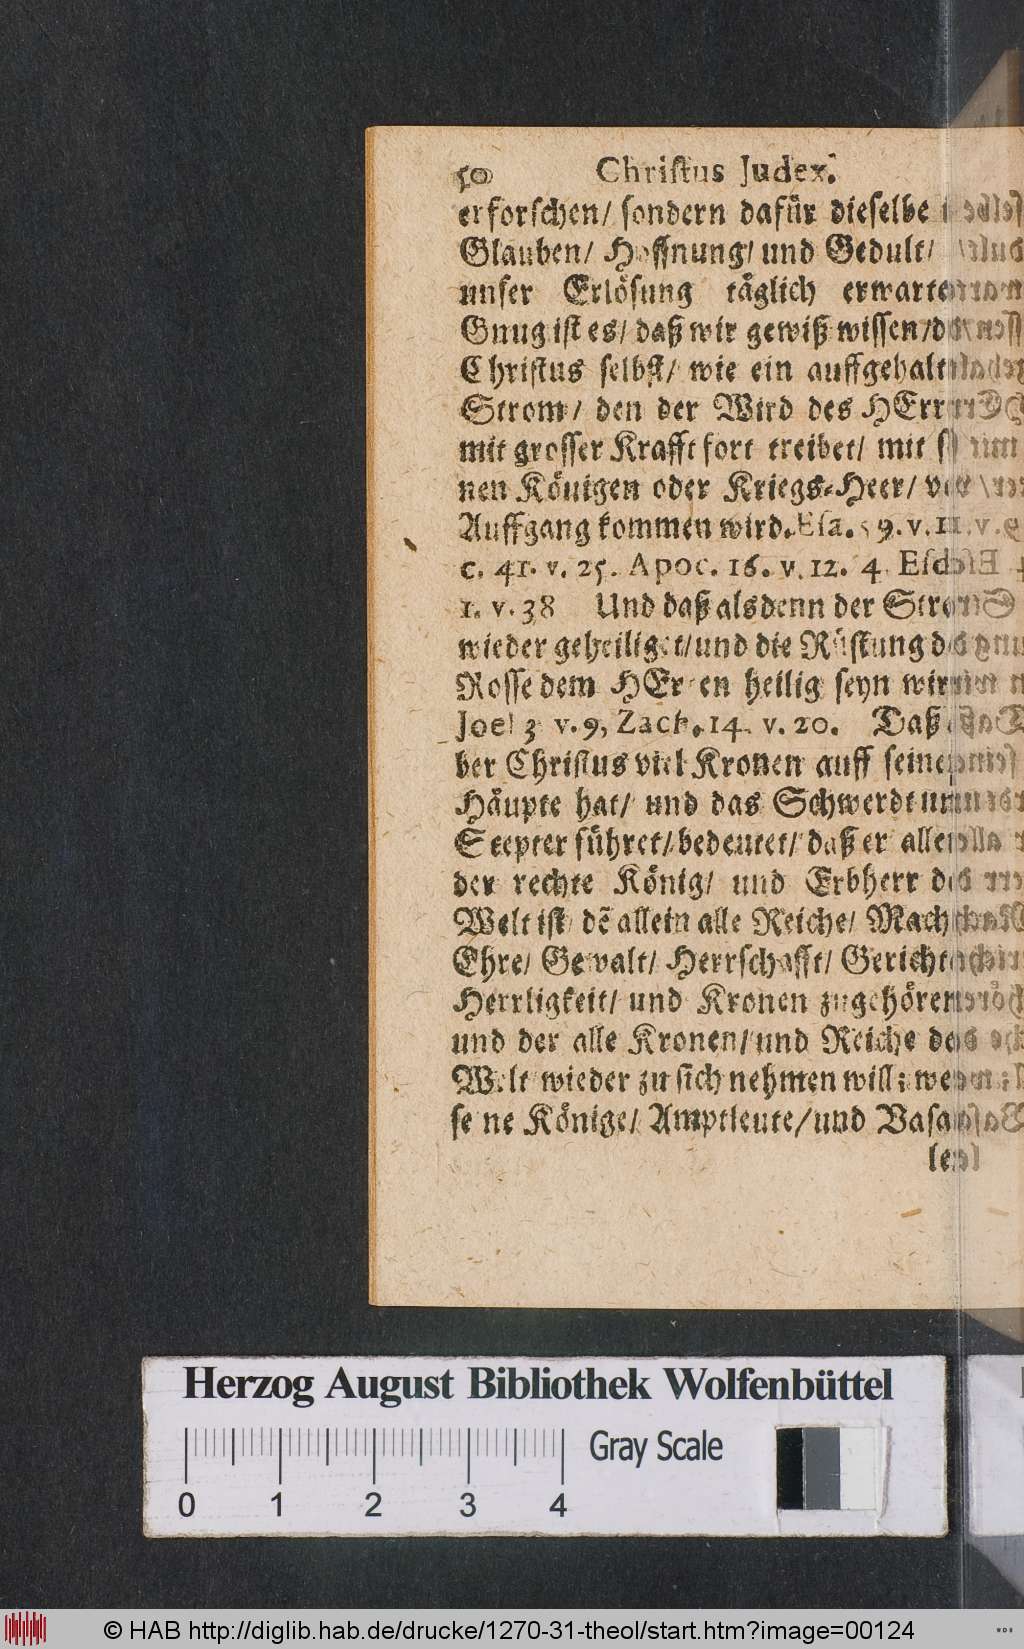 50 Christus Judex.
erforschen/ sondern dafür dieselbe
Glauben/ Hoffnung/ und Gedult/
unser Erlösung täglich erwarten
Gnug ist es/ daß wir gewiß wissen/
Christus selbst/ wie ein auffgehalt
Strom/ den der Wird des HErr
mit grosser Krafft fort treibet/ mit
nen Königen oder Kriegs-Heer/
Auffgang kommen wird. Esa. 59. v. 11.
c. 41. v. 25. Apoc. 16. v. 12. 4 Esd
1. v. 38 Und daß alsdenn der Strom
wieder geheiliget/ und die Rüstung
Rosse dem HErren heilig seyn wir
Joel 3 v. 9, Zach. 14. v. 20. Daß
ber Christus viel Kronen auff seine
Häupte hat/ und das Schwerdt
Scepter führet/ bedeutet/ daß er alle
der rechte König/ und Erbherr
Welt ist/ dē allein alle Reiche/ Mach
Ehre/ Gewalt/ Herrschafft/ Gericht
Herrligkeit/ und Kronen zugehören
und der alle Kronen/ und Reiche
Welt wieder zu sich nehmen will;
seine Könige/ Amptleute/ und Vasa
len
Herzog August Bibliothek Wolfenbüttel
Gray Scale
0 1 2 3 4
© HAB http://diglib.hab.de/drucke/1270-31-theol/start.htm?image=00124